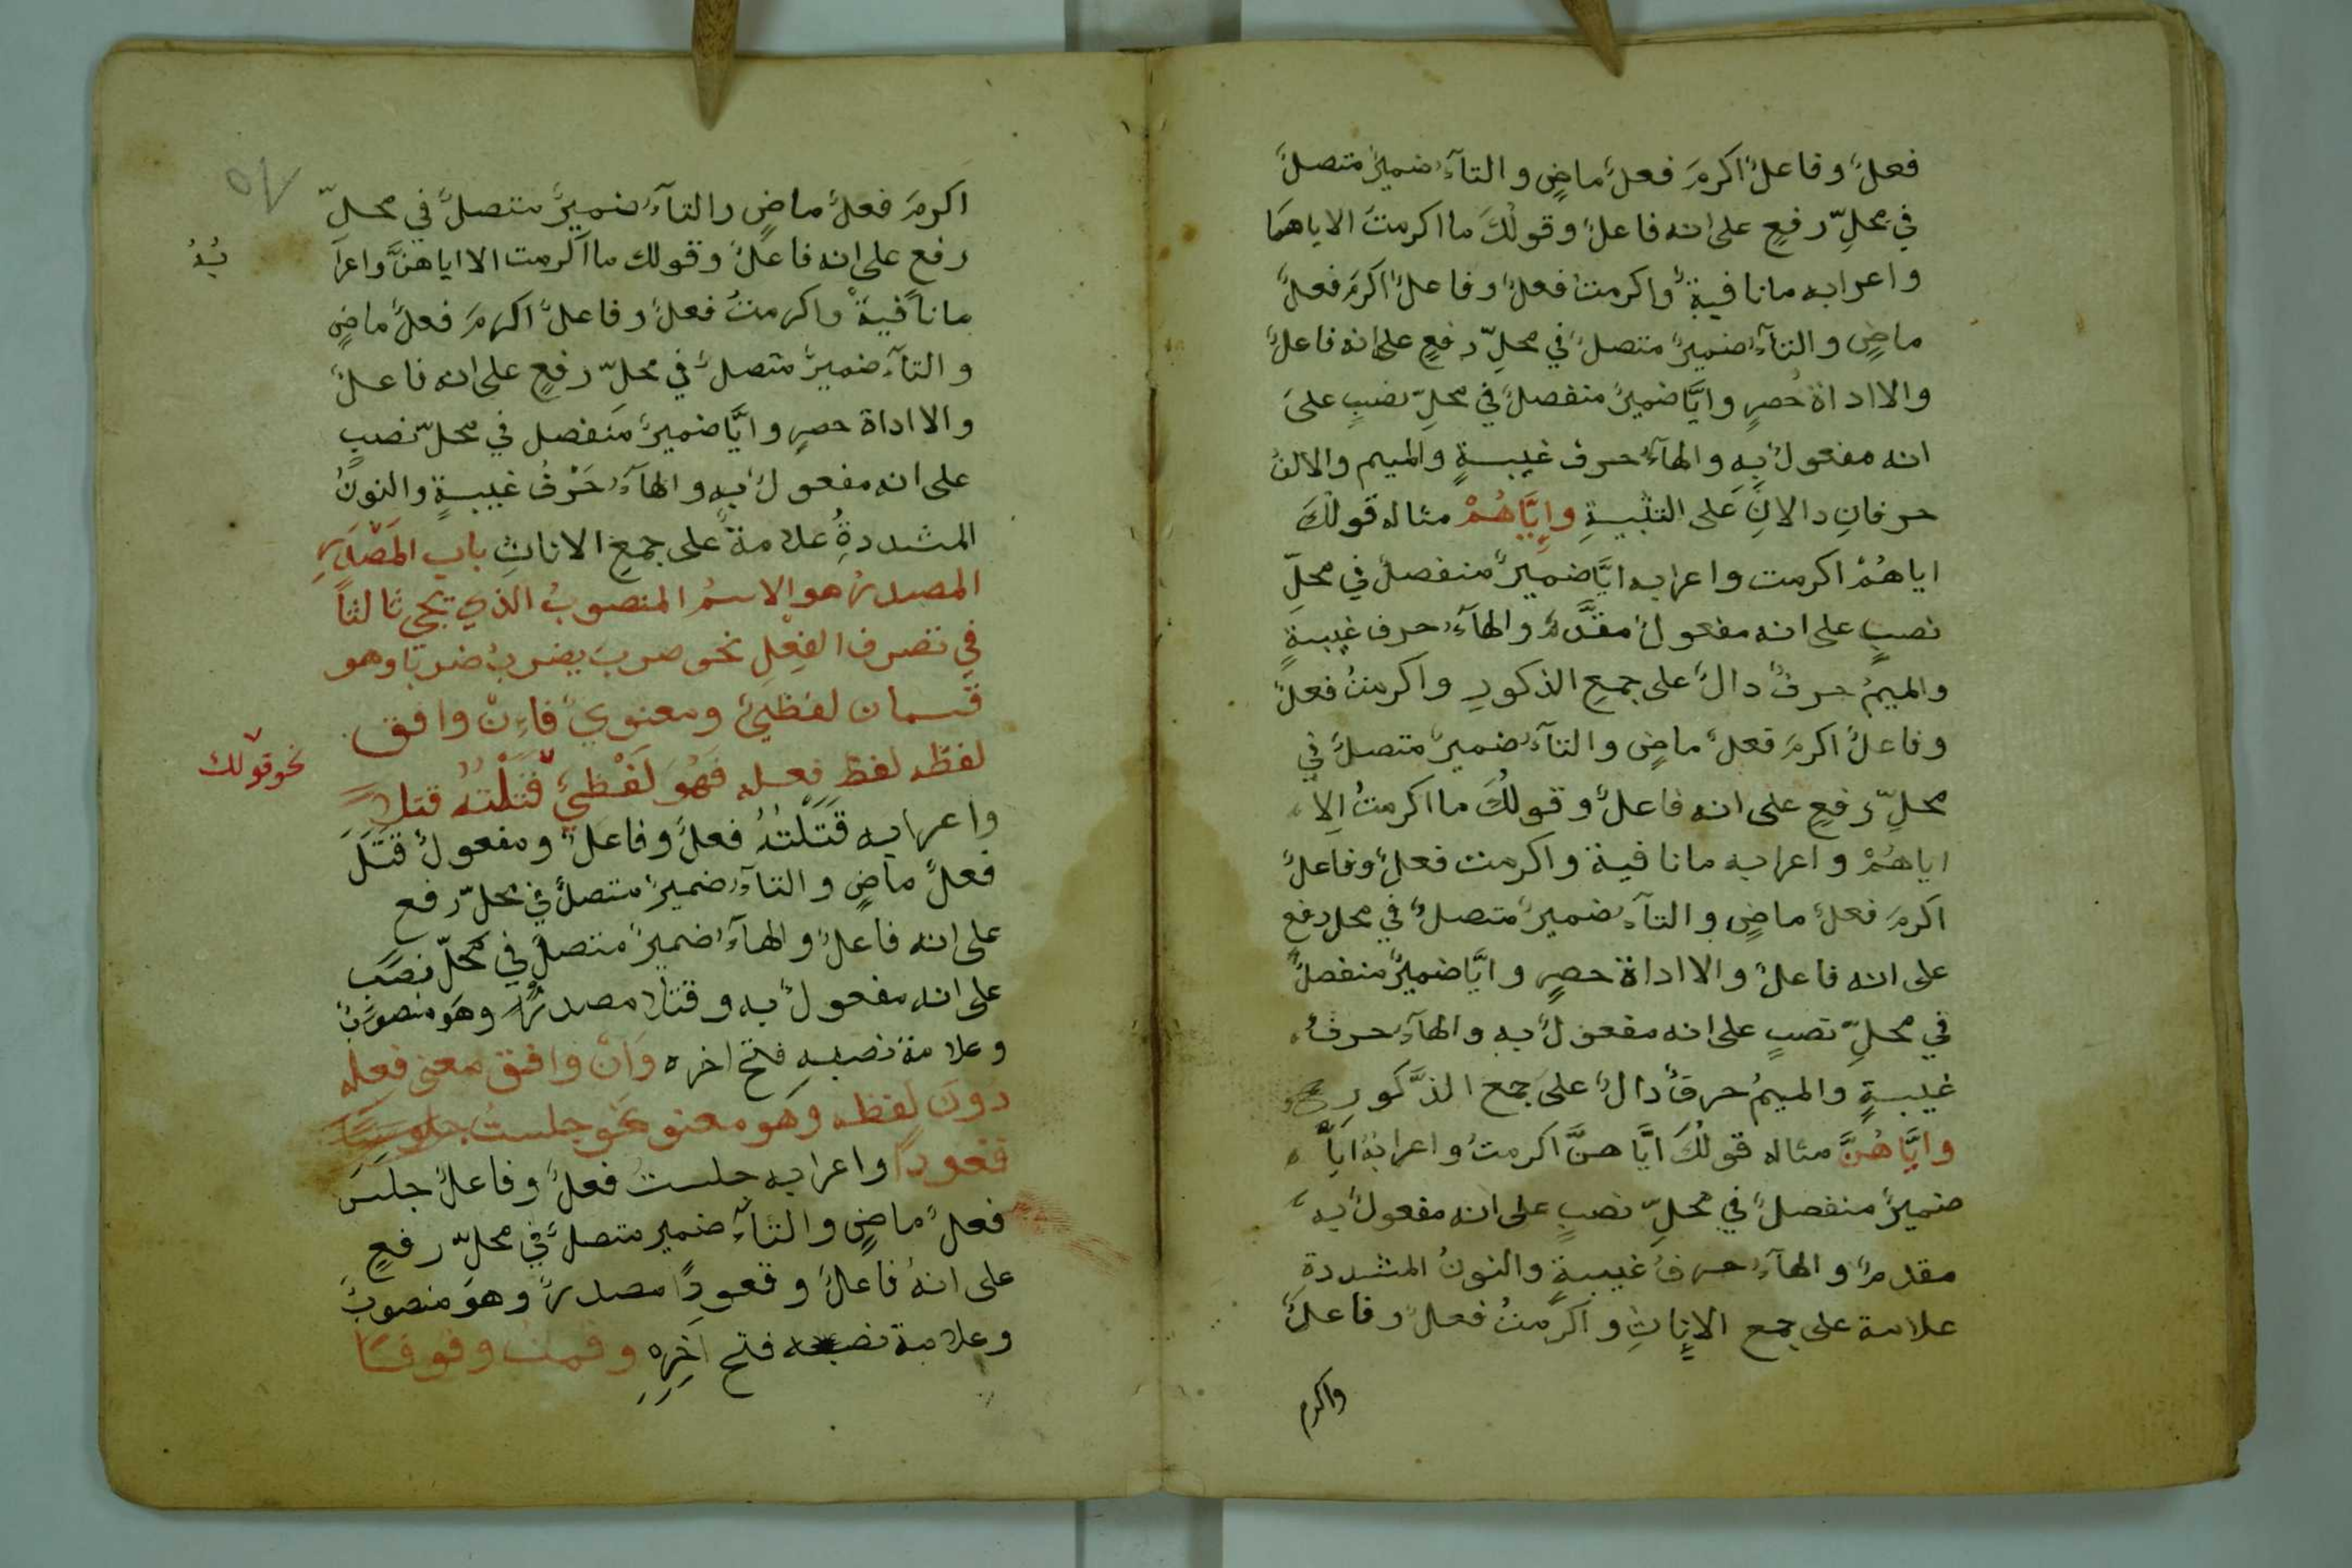 فعلٌ وفاعلٌ اكرمَ فعلٌ ماضٍ والتآءُ ضميرٌ متصلٌ
في محلِّ رفعٍ على انه فاعلٌ وقولُكَ ما اكرمتَ الا اياهمَا
واعرابه ما نافيةٌ واكرمتُ فعلٌ وفاعلٌ اكرمَ فعلٌ
ماضٍ والتآءُ ضميرٌ متصلٌ في محلِّ رفعٍ على انه فاعلٌ
والا اداة حُصرٍ وايَّا ضميرٌ منفصلٌ في محلِّ نصبٍ علىَ
انه مفعولٌ بِهِ والهآءُ حرف غيبةٍ والميم والالفُ
حرفانِ دالانِ عَلى التثنيةِ وإيَّاهُمْ مثاله قولُكَ
اياهُمْ اكرمت واعرابه ايَّا ضميرٌ منفصلٌ في محلِّ
نصبٍ على انه مفعولٌ مقدَّمٌ والهآءُ حرف غيبةٍ
والميمُ حرفٌ دالٌ على جمعِ الذكورِ واكرمتُ فعلٌ
وفاعلٌ اكرمَ فعلٌ ماضٍ والتآءُ ضميرٌ متصلٌ في
محلِّ رفعٍ على انه فاعلٌ وقولُكَ ما اكرمتُ اِلا
اياهُمْ واعرابه ما نافية واكرمت فعلٌ وفاعلٌ
اكرمَ فعلٌ ماضٍ والتآءُ ضميرٌ متصلٌ في محل رفع
على انه فاعلٌ والا اداة حصرٍ وايَّا ضميرٌ منفصلٌ
في محلِّ نصبٍ على انه مفعولٌ به والهآءُ حرفُ
غيبةٍ والميمُ حرفٌ دالٌ علىَ جمع الذَّكورِ
وايَّاهُنَّ مثاله قولُكَ ايَّاهنَّ اكرمتُ واعرابُهُ ايَّا
ضميرٌ منفصلٌ في محلِّ نصبٍ على انه مفعولٌ به
مقدمٌ والهآءُ حرفُ غيبةٍ والنونُ المشددةِ
علامة على جمع الاِناثِ واكرمتُ فعلٌ وفاعلٌ
واكرم
اكرمَ فعلٌ ماضٍ والتآءُ ضميرٌ متصلٌ في محلِّ
رفع على انه فاعلٌ وقولك ما اكرمت الا اياهنَّ واعرا
بُهُ
ما نافيةٌ واكرمتُ فعلٌ وفاعلٌ اكرمَ فعلٌ ماضٍ
والتآءُ ضميرٌ متصلٌ في محلِّ رفعٍ على انه فاعلٌ
والا اداة حصرٍ وايَّا ضميرٌ منفصل في محلِّ نصبٍ
على انه مفعولٌ بهِ والهآءُ حَرْفُ غيبةٍ والنونُ
المشددةِ علامةٌ على جمعِ الاناثِ باب المَصْدَرِ
المصدرُ هو الاسمُ المنصوبُ الذي يجي ثالثاً
في تصرف الفِعْلِ نحو ضربَ يضربُ ضربًا وهو
قسمان لفظيٌ ومعنويٌ فاءِنْ وافق
لفظه لفظ فعله فَهُوَ لَفْظِيٌ قَتَلْتُهُ قتلاً
نحو قولك
واعرابه قَتَلْتُهُ فعلٌ وفاعلٌ ومفعولٌ قَتَلَ
فعلٌ ماضٍ والتآءُ ضميرٌ متصلٌ في محلِّ رفع
على انه فاعلٌ والهآءُ ضميرٌ متصلٌ في محلِّ نصبٍ
على انه مفعولٌ به وقتلا مصدرٌ وهَو منصوبٌ
وعلامة نصبهِ فتح اخره وَاِنْ وافق معني فعله
دونَ لفظه وهو معنو نحو جلستُ جلوسًا
قعودًا واعرابه جلستُ فعلٌ وفاعلٌ جلَسَ
فعلٌ ماضٍ والتآءُ ضمير متصلٌ في محلِّ رفعٍ
على انهُ فاعلٌ وقعودًا مصدرٌ وهوَ منصوبٌ
وعلامة نصبه فتح آخِرِهِ وقمتُ وقوفًا